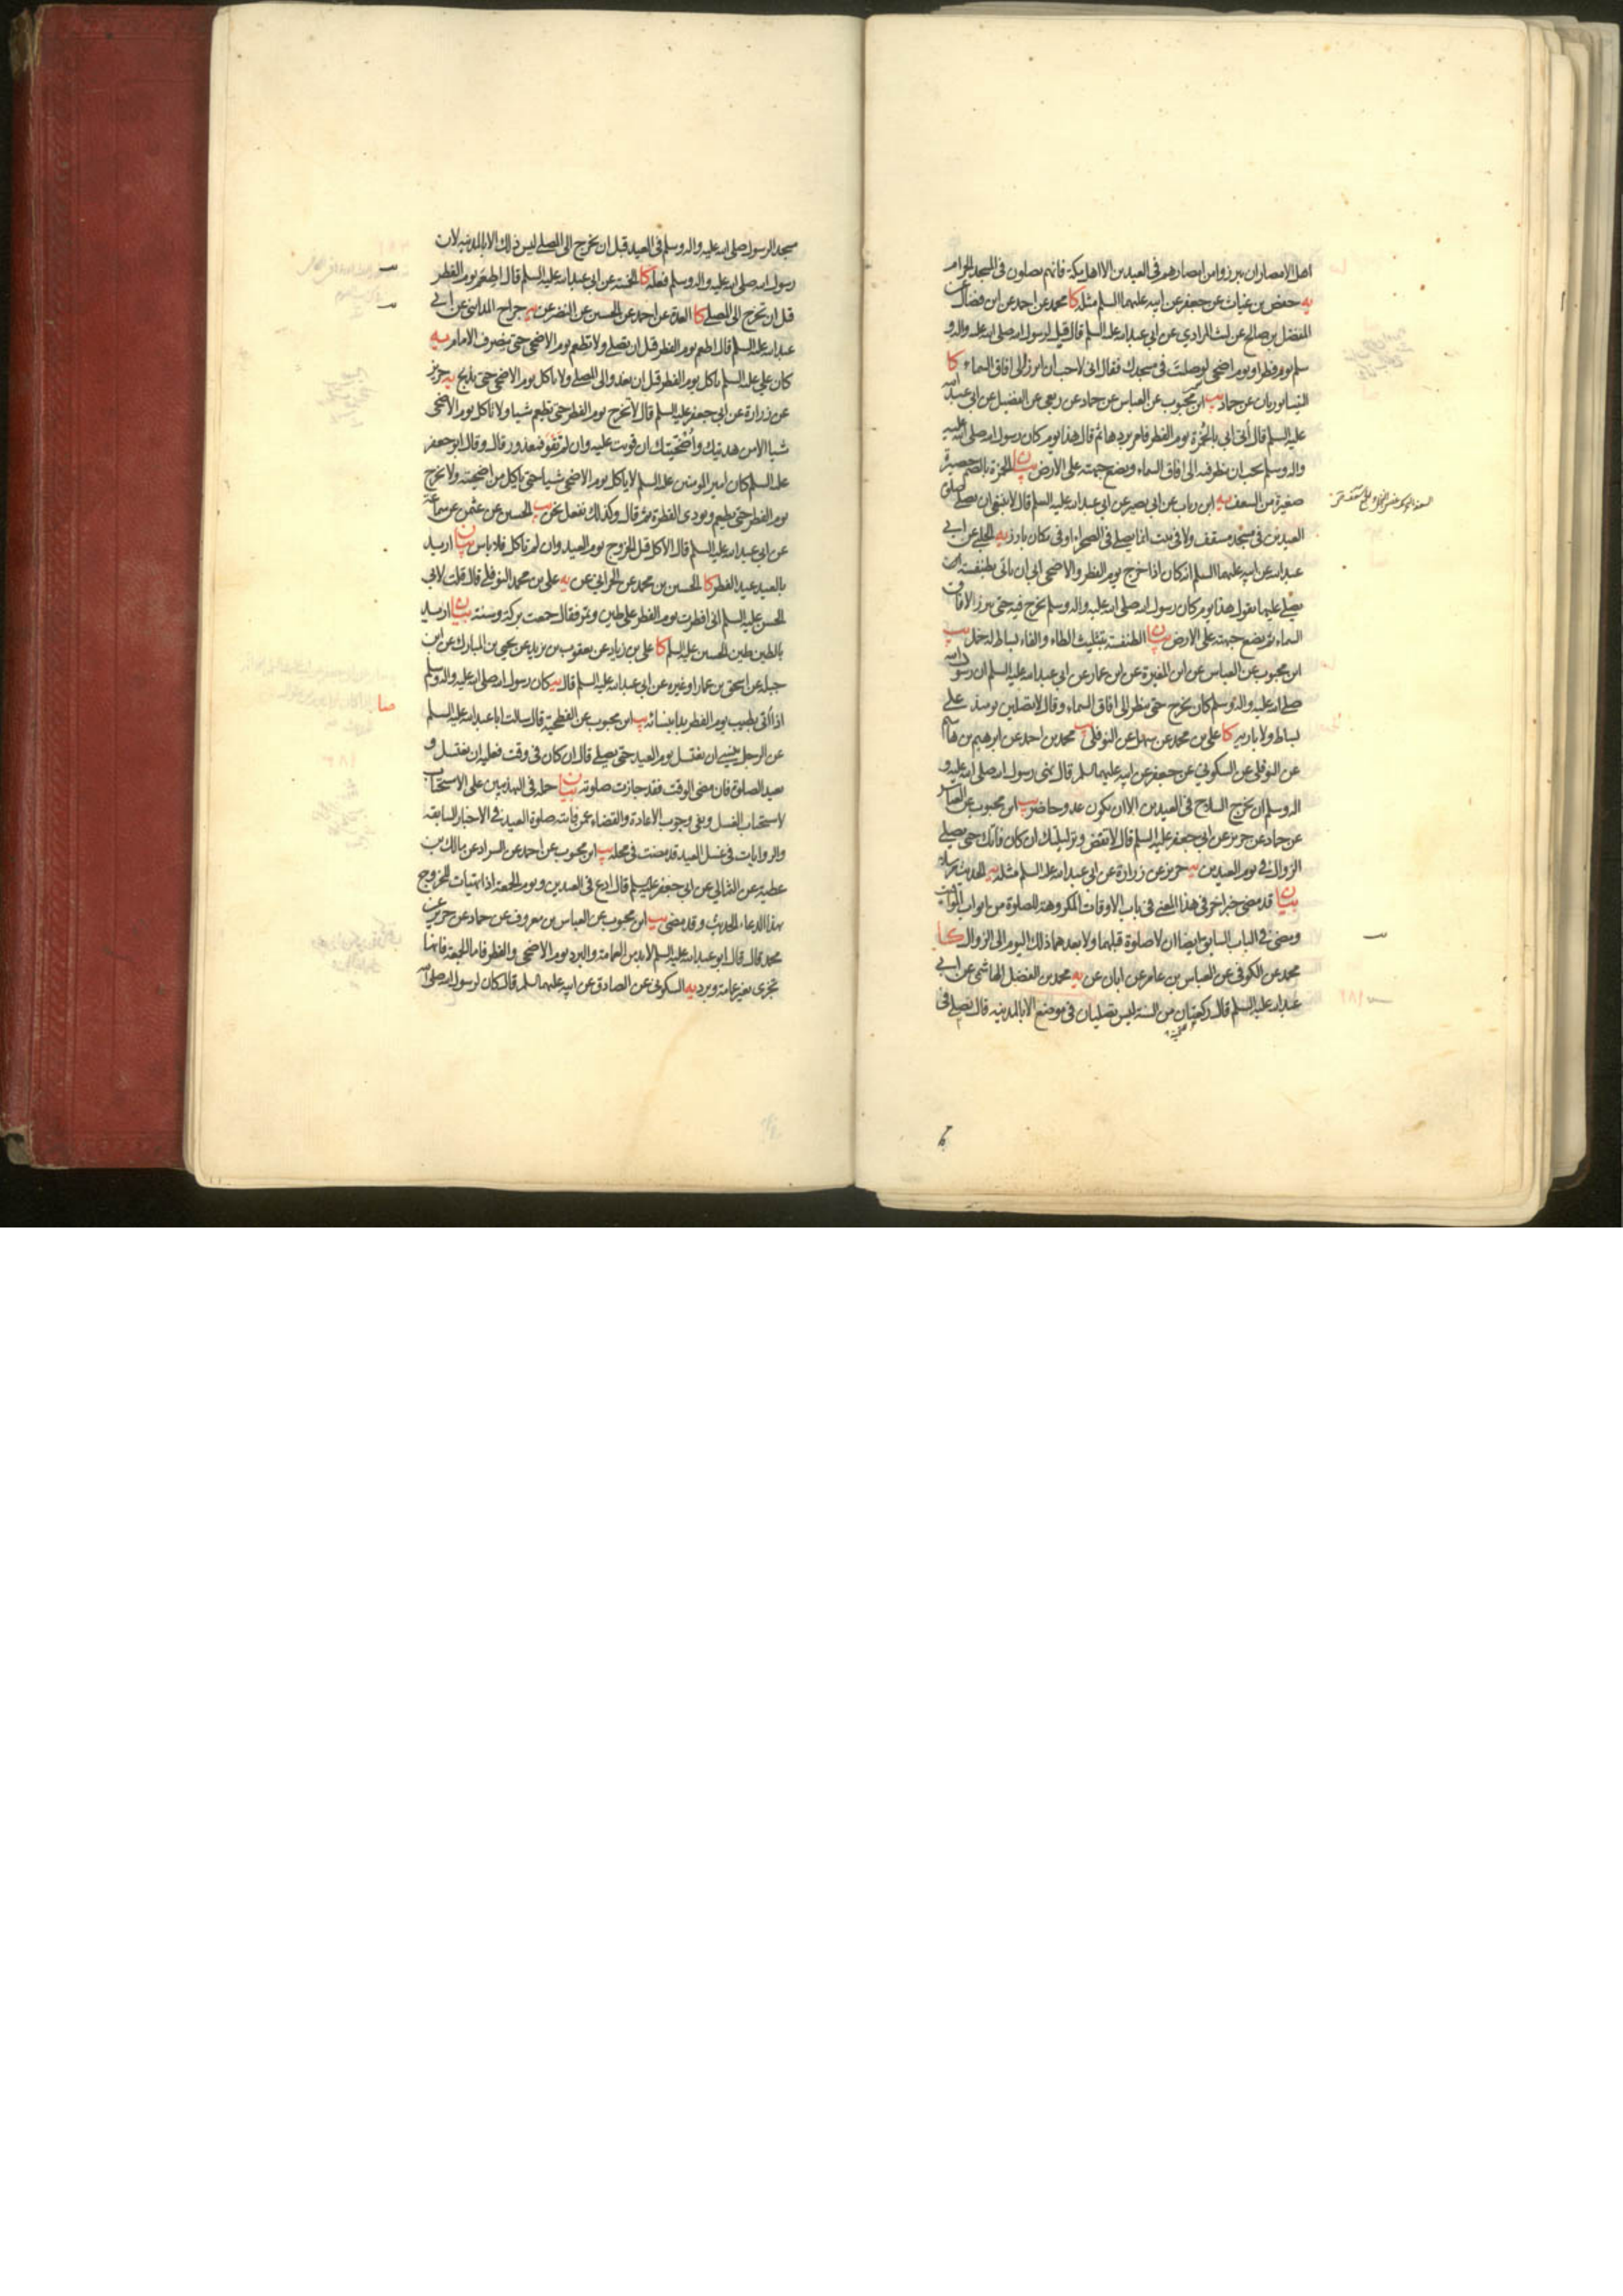 اهل الامصار ان يبرزوا من امصارهم في العيدين الا اهل مكة فانهم يصلون في المسجد الحرام
يه حفص بن غياث عن جعفر عن ابيه عليهما السلم مثله كا محمد عن احمد عن ابن فضال عن
المفضل بن صالح عن ليث المرادي عن ابي عبد الله عليه السلم قال قيل لرسول الله صلى الله عليه واله و
سلم يوم فطر او يوم اضحى لو صليت في مسجدك فقال اني لاحب ان ابرز الى افاق السماء كا
النيسابوريان عن حماد يب ابن محبوب عن العباس عن حماد عن ربعي عن الفضيل عن ابي عبد الله
عليه السلم قال أتي ابي بالخمرة يوم الفطر فامر بردها ثم قال هذا يوم كان رسول الله صلى الله عليه
واله وسلم يحب ان ينظر فيه الى افاق السماء ويضع جبهته على الارض بيان الخمرة بالضم حصيرة
صغيرة من السعف يه ابن رياب عن ابي بصير عن ابي عبد الله عليه السلم قال لا ينبغي ان يصلى صلوة
العيدين في مسجد مسقف ولا في بيت انما يصلى في الصحراء او في مكان بارز يه الحلبي عن ابي
عبد الله عن ابيه عليهما السلم انه كان اذا خرج يوم الفطر والاضحى ابى ان يأتى بطنفسة
يصلي عليها يقول هذا يوم كان رسول الله صلى الله عليه واله وسلم يخرج فيه حتى يبرز لافاق
السماء ثم يضع جبهته على الارض بيان الطنفسة بتثليث الطاء والفاء بساط له خمل يب
ابن محبوب عن العباس عن ابن المغيرة عن ابن عمار عن ابي عبد الله عليه السلم ان رسول الله
صلى الله عليه واله وسلم كان يخرج حتى ينظر الى افاق السماء وقال لا تصلين يومئذ على
بساط ولا بارية كا علي بن محمد عن سهل عن النوفلي يب محمد بن احمد عن ابرهيم بن هاشم
عن النوفلي عن السكوني عن جعفر عن ابيه عليهما السلم قال نهى رسول الله صلى الله عليه و
اله وسلم ان يخرج السلاح في العيدين الا ان يكون عدو حاضر يب ابن محبوب عن العباس
عن حماد عن حريز عن ابي جعفر عليه السلم قال لا تقض وتر ليلتك ان كان فاتك حتى يصلي
الزوال في يوم العيدين يه حريز عن زرارة عن ابي عبد الله عليه السلم مثله يه الحديث مرسلا
بيان قد مضى خبر اخر في هذا المعنى في باب الاوقات المكروهة للصلوة من ابواب المواقيت
ومضى في الباب السابق ايضا ان لا صلوة قبلهما ولا بعدهما ذلك اليوم الى الزوال كا
محمد عن الكوفي عن العباس بن عامر عن ابان عن يه محمد بن الفضل الهاشمي عن ابي
عبد الله عليه السلم قال ركعتان من السنة ليس تصليان في موضع الا بالمدينة قال يصلي في
مسجد الرسول صلى الله عليه واله وسلم في العيد قبل ان يخرج الى المصلى ليس ذلك الا بالمدينة لان
رسول الله صلى الله عليه واله وسلم فعله كا الخمسة عن ابي عبد الله عليه السلم قال اطعم يوم الفطر
قبل ان تخرج الى المصلى كا العدة عن احمد عن الحسين عن النضر عن يه جراح المدايني عن ابي
عبد الله عليه السلم قال اطعم يوم الفطر قبل ان تصلي ولا تطعم يوم الاضحى حتى ينصرف الامام يه
كان علي عليه السلم ياكل يوم الفطر قبل ان يغدو الى المصلى ولا ياكل يوم الاضحى حتى يذبح يه حريز
عن زرارة عن ابي جعفر عليه السلم قال لا تخرج يوم الفطر حتى تطعم شيا ولا تاكل يوم الاضحى
شيا الا من هديتك وأضحيتك ان قويت عليه وان لم تقو فمعذور قال وقال ابو جعفر
عليه السلم كان امير المومنين عليه السلم لا ياكل يوم الاضحى شيا حتى ياكل من اضحيته ولا يخرج
يوم الفطر حتى يطعم ويودي الفطرة ثم قال وكذلك نفعل نحن يب الحسين عن عثمن عن سماعة
عن ابي عبد الله عليه السلم قال الاكل قبل الخروج يوم العيد وان لم تاكل فلا باس بيان اريد
بالعيد عيد الفطر كا الحسين بن محمد عن الحراني عن يه علي بن محمد النوفلي قال قلت لابي
الحسن عليه السلم اني افطرت يوم الفطر على طين وتمر فقال جمعت بركة وسنة بيان اريد
بالطين طين الحسين عليه السلم كا علي بن زياد عن يعقوب بن يزيد عن يحيى بن المبارك عن ابن
جبلة عن اسحق بن عمار او غيره عن ابي عبد الله عليه السلم قال يه كان رسول الله صلى الله عليه واله وسلم
اذا أتي بطيب يوم الفطر بدا بنسائه يب ابن محبوب عن الفطحية قال سالت ابا عبد الله عليه السلم
عن الرجل ينسى ان يغتسل يوم العيد حتى يصلي قال ان كان في وقت فعليه ان يغتسل و
يعيد الصلوة فان مضى الوقت فقد جازت صلوته بيان حمله في التهذيبين على الاستحباب
لاستحباب الغسل ونفى وجوب الاعادة والقضاء عمن فاتته صلوة العيد في الاخبار السابقة
والروايات في غسل العيد قد مضت في محله يب ابن محبوب عن احمد عن السراد عن مالك بن
عطية عن الثمالي عن ابي جعفر عليه السلم قال ادع في العيدين ويوم الجمعة اذا تهيات للخروج
بهذا الدعاء الحديث وقد مضى يب ابن محبوب عن العباس بن معروف عن حماد عن حريز عن
محمد قال قال ابو عبد الله عليه السلم لا بد من العمامة والبرد يوم الاضحى والفطر فاما الجمعة فانها
تجزى بغير عمامة وبرد يه السكوني عن الصادق عن ابيه عليهما السلم قال كان لرسول الله صلى الله